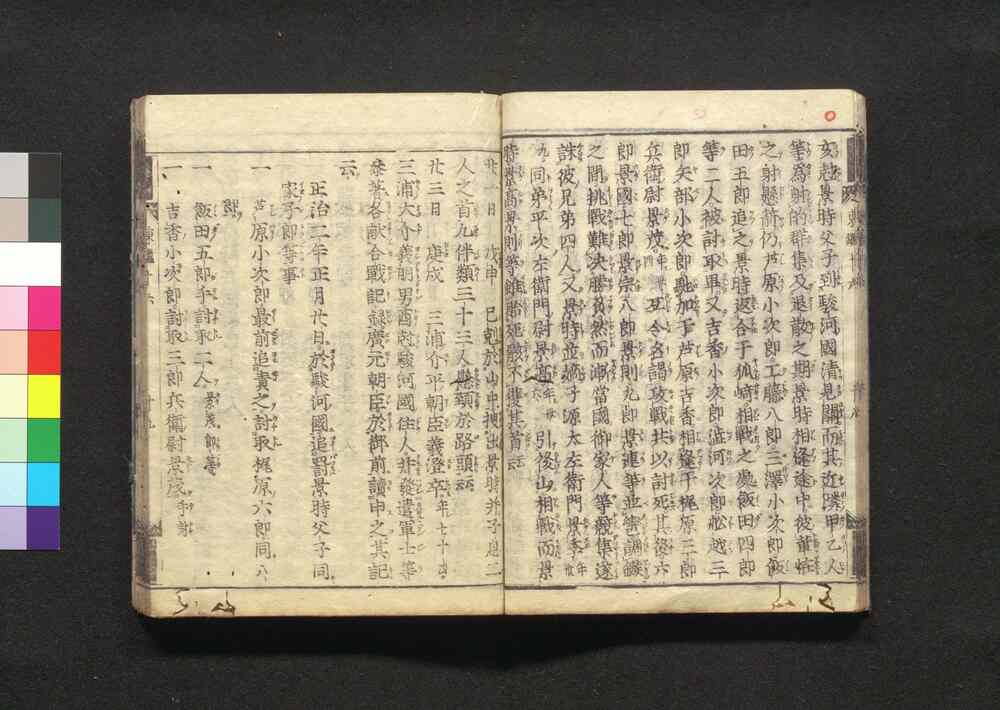 亥剋景時父子到駿河國清見關而其近隣甲乙人
等為射的群集及退散之期景時相逢途中彼輩恠
之射懸箭仍芦原小次郎工藤八郎三澤小次郎飯
田五郎追之景時返合于狐崎相戰之處飯田四郎
等二人被討取畢又吉香小次郎澁河次郎船越三
郎矢部小次郎馳加于芦原吉香相逢于梶原三郎
兵衛尉景茂年 互令名謁攻戰共以討死其後六
郎景國七郎景宗八郎景則九郎景連等並轡調鏃
之間挑戰難决勝負然而漸當國御家人等競集遂
誅彼兄弟四人又景時並嫡子源太左衛門景季年
九同弟平次左衛門尉景高年 引後山相戰而景
時景高景則等雖貽死骸不獲其首云云
廿一日 戊申 巳剋於山中搜出景時并子息二
人之首凡伴類三十三人懸頸於路頭云云
廿三日 庚戌 三浦介平朝臣義澄卒年七十四
三浦大介義明男酉剋駿河國住人并發遣軍士等
參著各献合戰記録廣元朝臣於御前讀申之其記
云
正治二年正月廿日於駿河國追罸景時父子同
家子郎等事
一 芦原小次郎最前追責之討取梶原六郎同八
郎
一 飯田五郎手討取二人景茂郎等
一 吉香小次郎討取三郎兵衛尉景茂手討